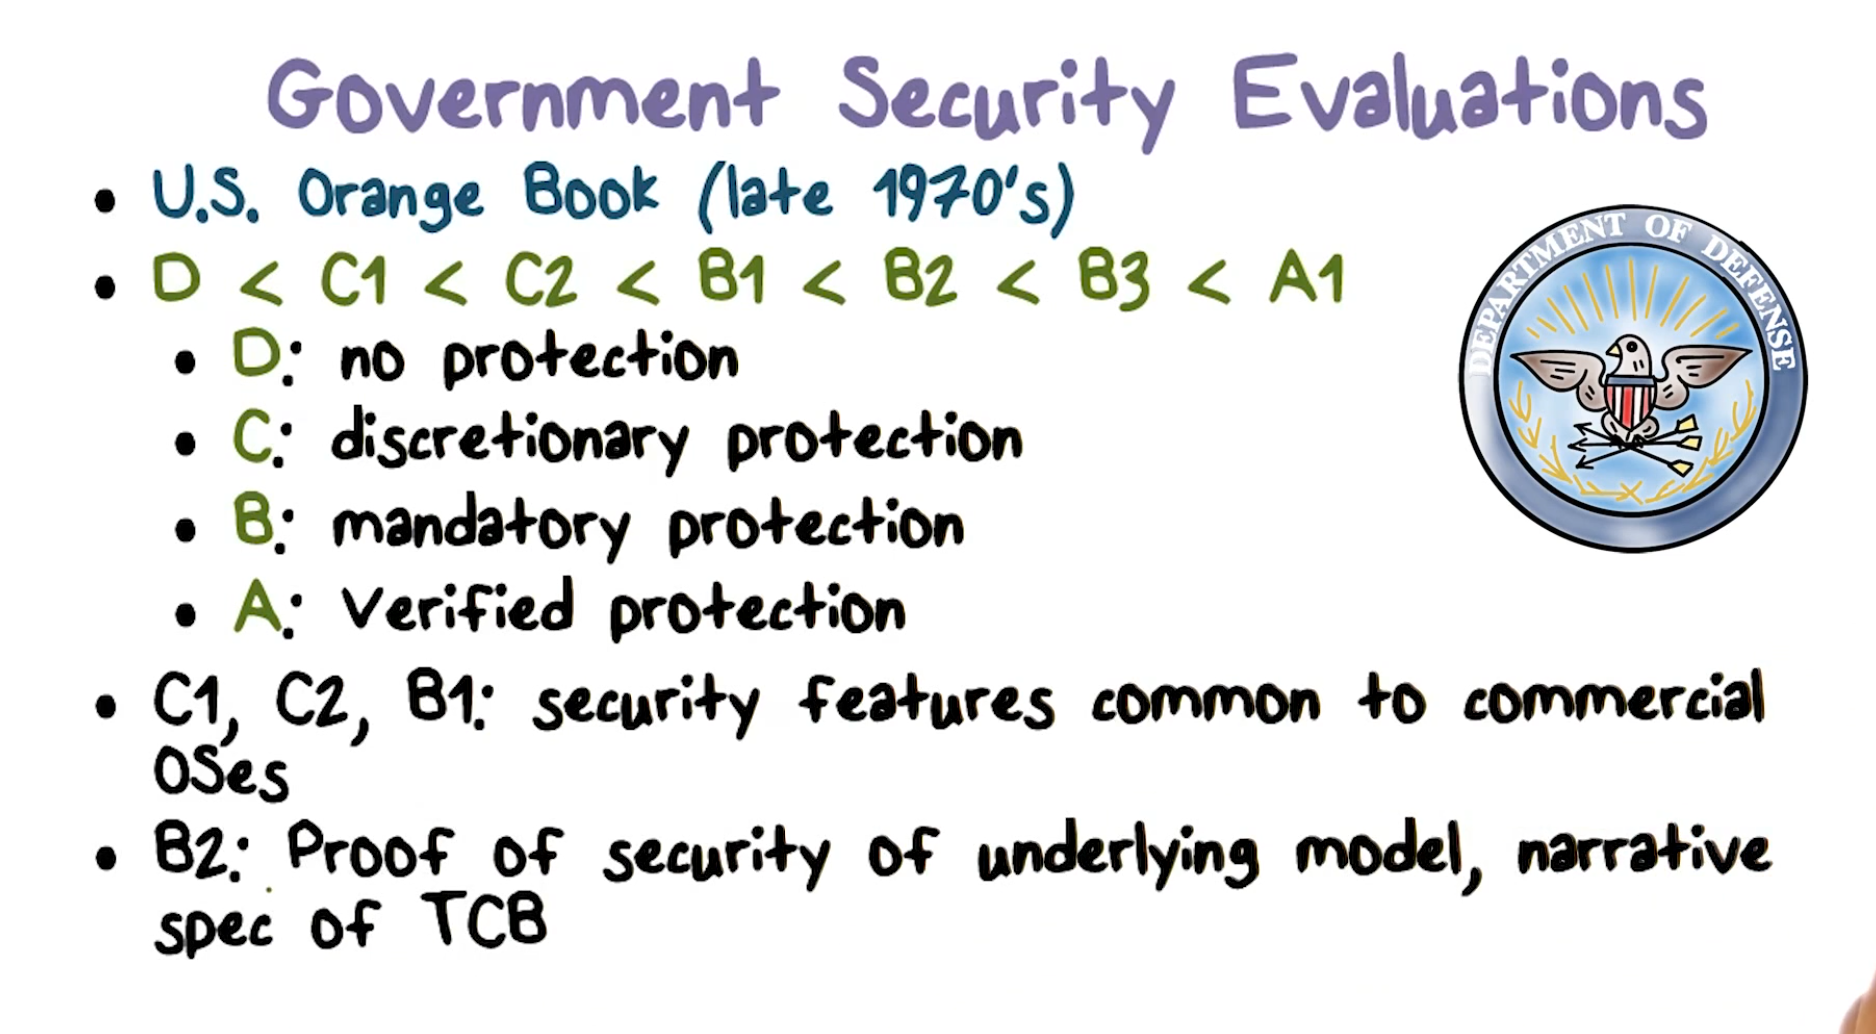 Government Security Evaluations
• U.S. Orange Book (late 1970's)
• D < C1 < C2 < B1 < B2 < B3 < A1
• D: no protection
• C: discretionary protection
• B: mandatory protection
• A: Verified protection
• C1, C2, B1: security features common to commercial
OSes
• B2: Proof of security of underlying model, narrative
spec of TCB
DEPARTMENT OF DEFENSE